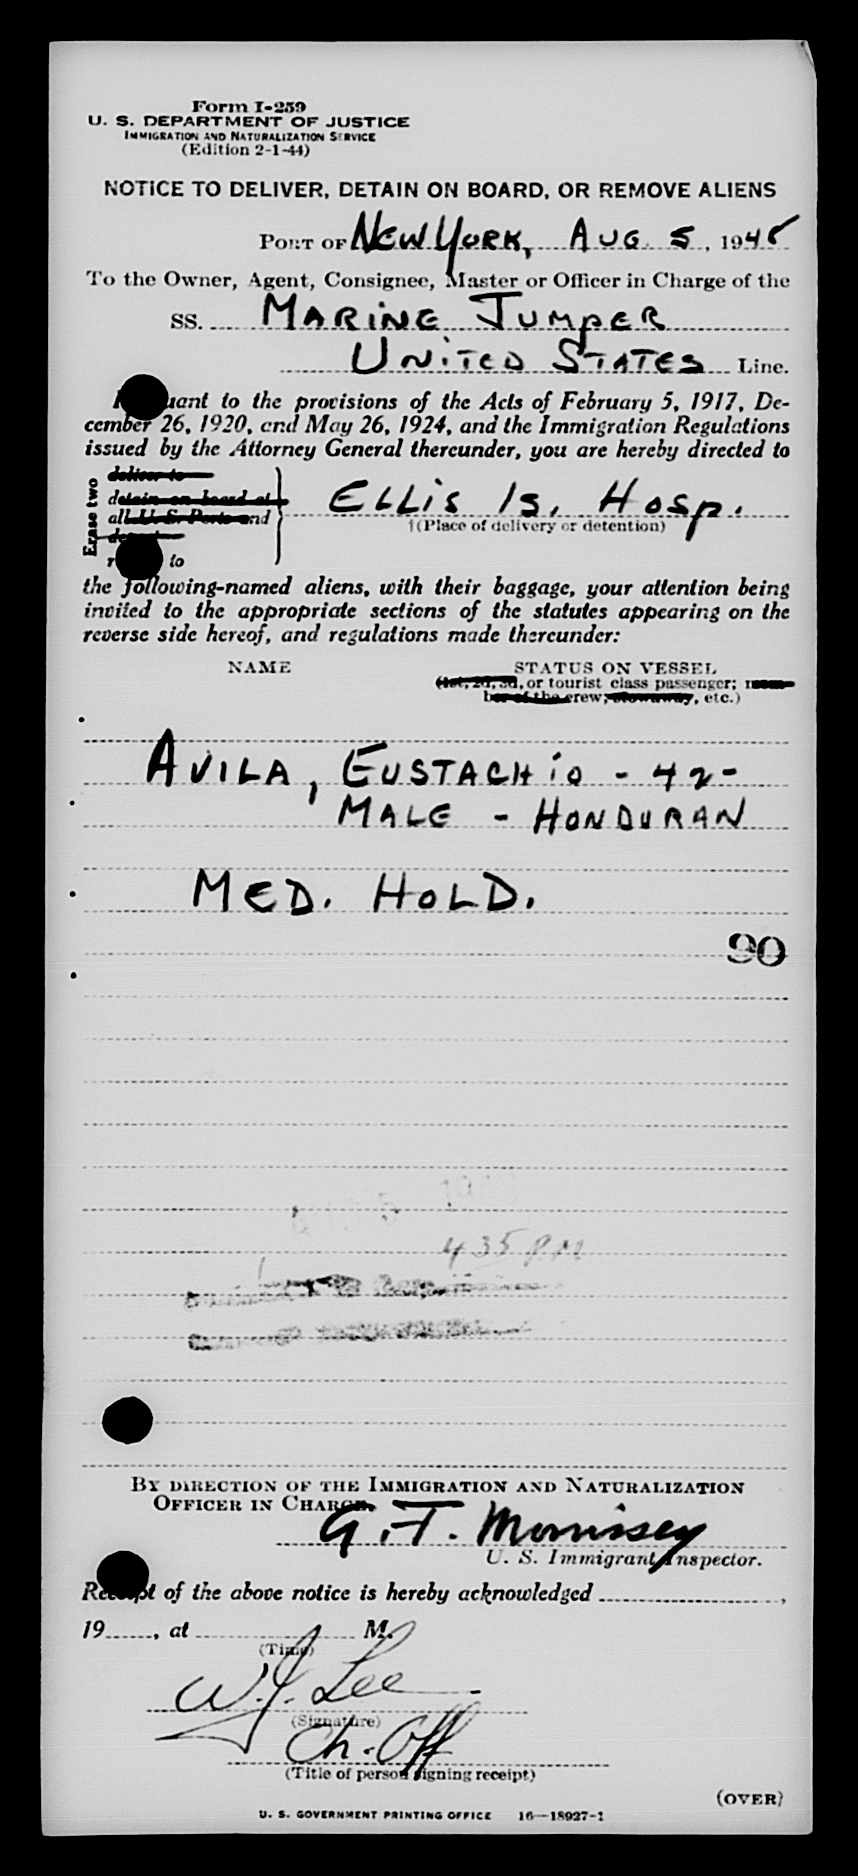 Form I-259
U. S. DEPARTMENT OF JUSTICE
IMMIGRATION AND NATURALIZATION SERVICE
(Edition 2-1-44)
NOTICE TO DELIVER, DETAIN ON BOARD, OR REMOVE ALIENS
PORT OF NEW YORK, AUG 5, 1945
To the Owner, Agent, Consignee, Master or Officer in Charge of the
SS. MARINE JUMPER
UNITED STATES Line.
to the provisions of the Acts of February 5, 1917, De-
cember 26, 1920, and May 26, 1924, and the Immigration Regulations
issued by the Attorney General thereunder, you are hereby directed to
Erase two
deliver to
detain on board at
all U. S. Ports and
ELLIS IS. HOSP.
†(Place of delivery or detention)
to
the following-named aliens, with their baggage, your attention being
invited to the appropriate sections of the statutes appearing on the
reverse side hereof, and regulations made thereunder:
NAME
STATUS ON VESSEL
(1st, 2d, 3d, or tourist class passenger; mem-
ber of the crew; stowaway, etc.)
AVILA, EUSTACHIO - 42 -
MALE - HONDURAN
MED. HOLD.
90
4 35 P.M
BY DIRECTION OF THE IMMIGRATION AND NATURALIZATION
OFFICER IN CHARGE.
G. T. Morrissey
U. S. Immigrant Inspector.
Receipt of the above notice is hereby acknowledged ,
19 , at M.
(Time)
W. J. Lee
(Signature)
Ch. Off
(Title of person signing receipt)
(OVER)
U. S. GOVERNMENT PRINTING OFFICE 16—18927-1